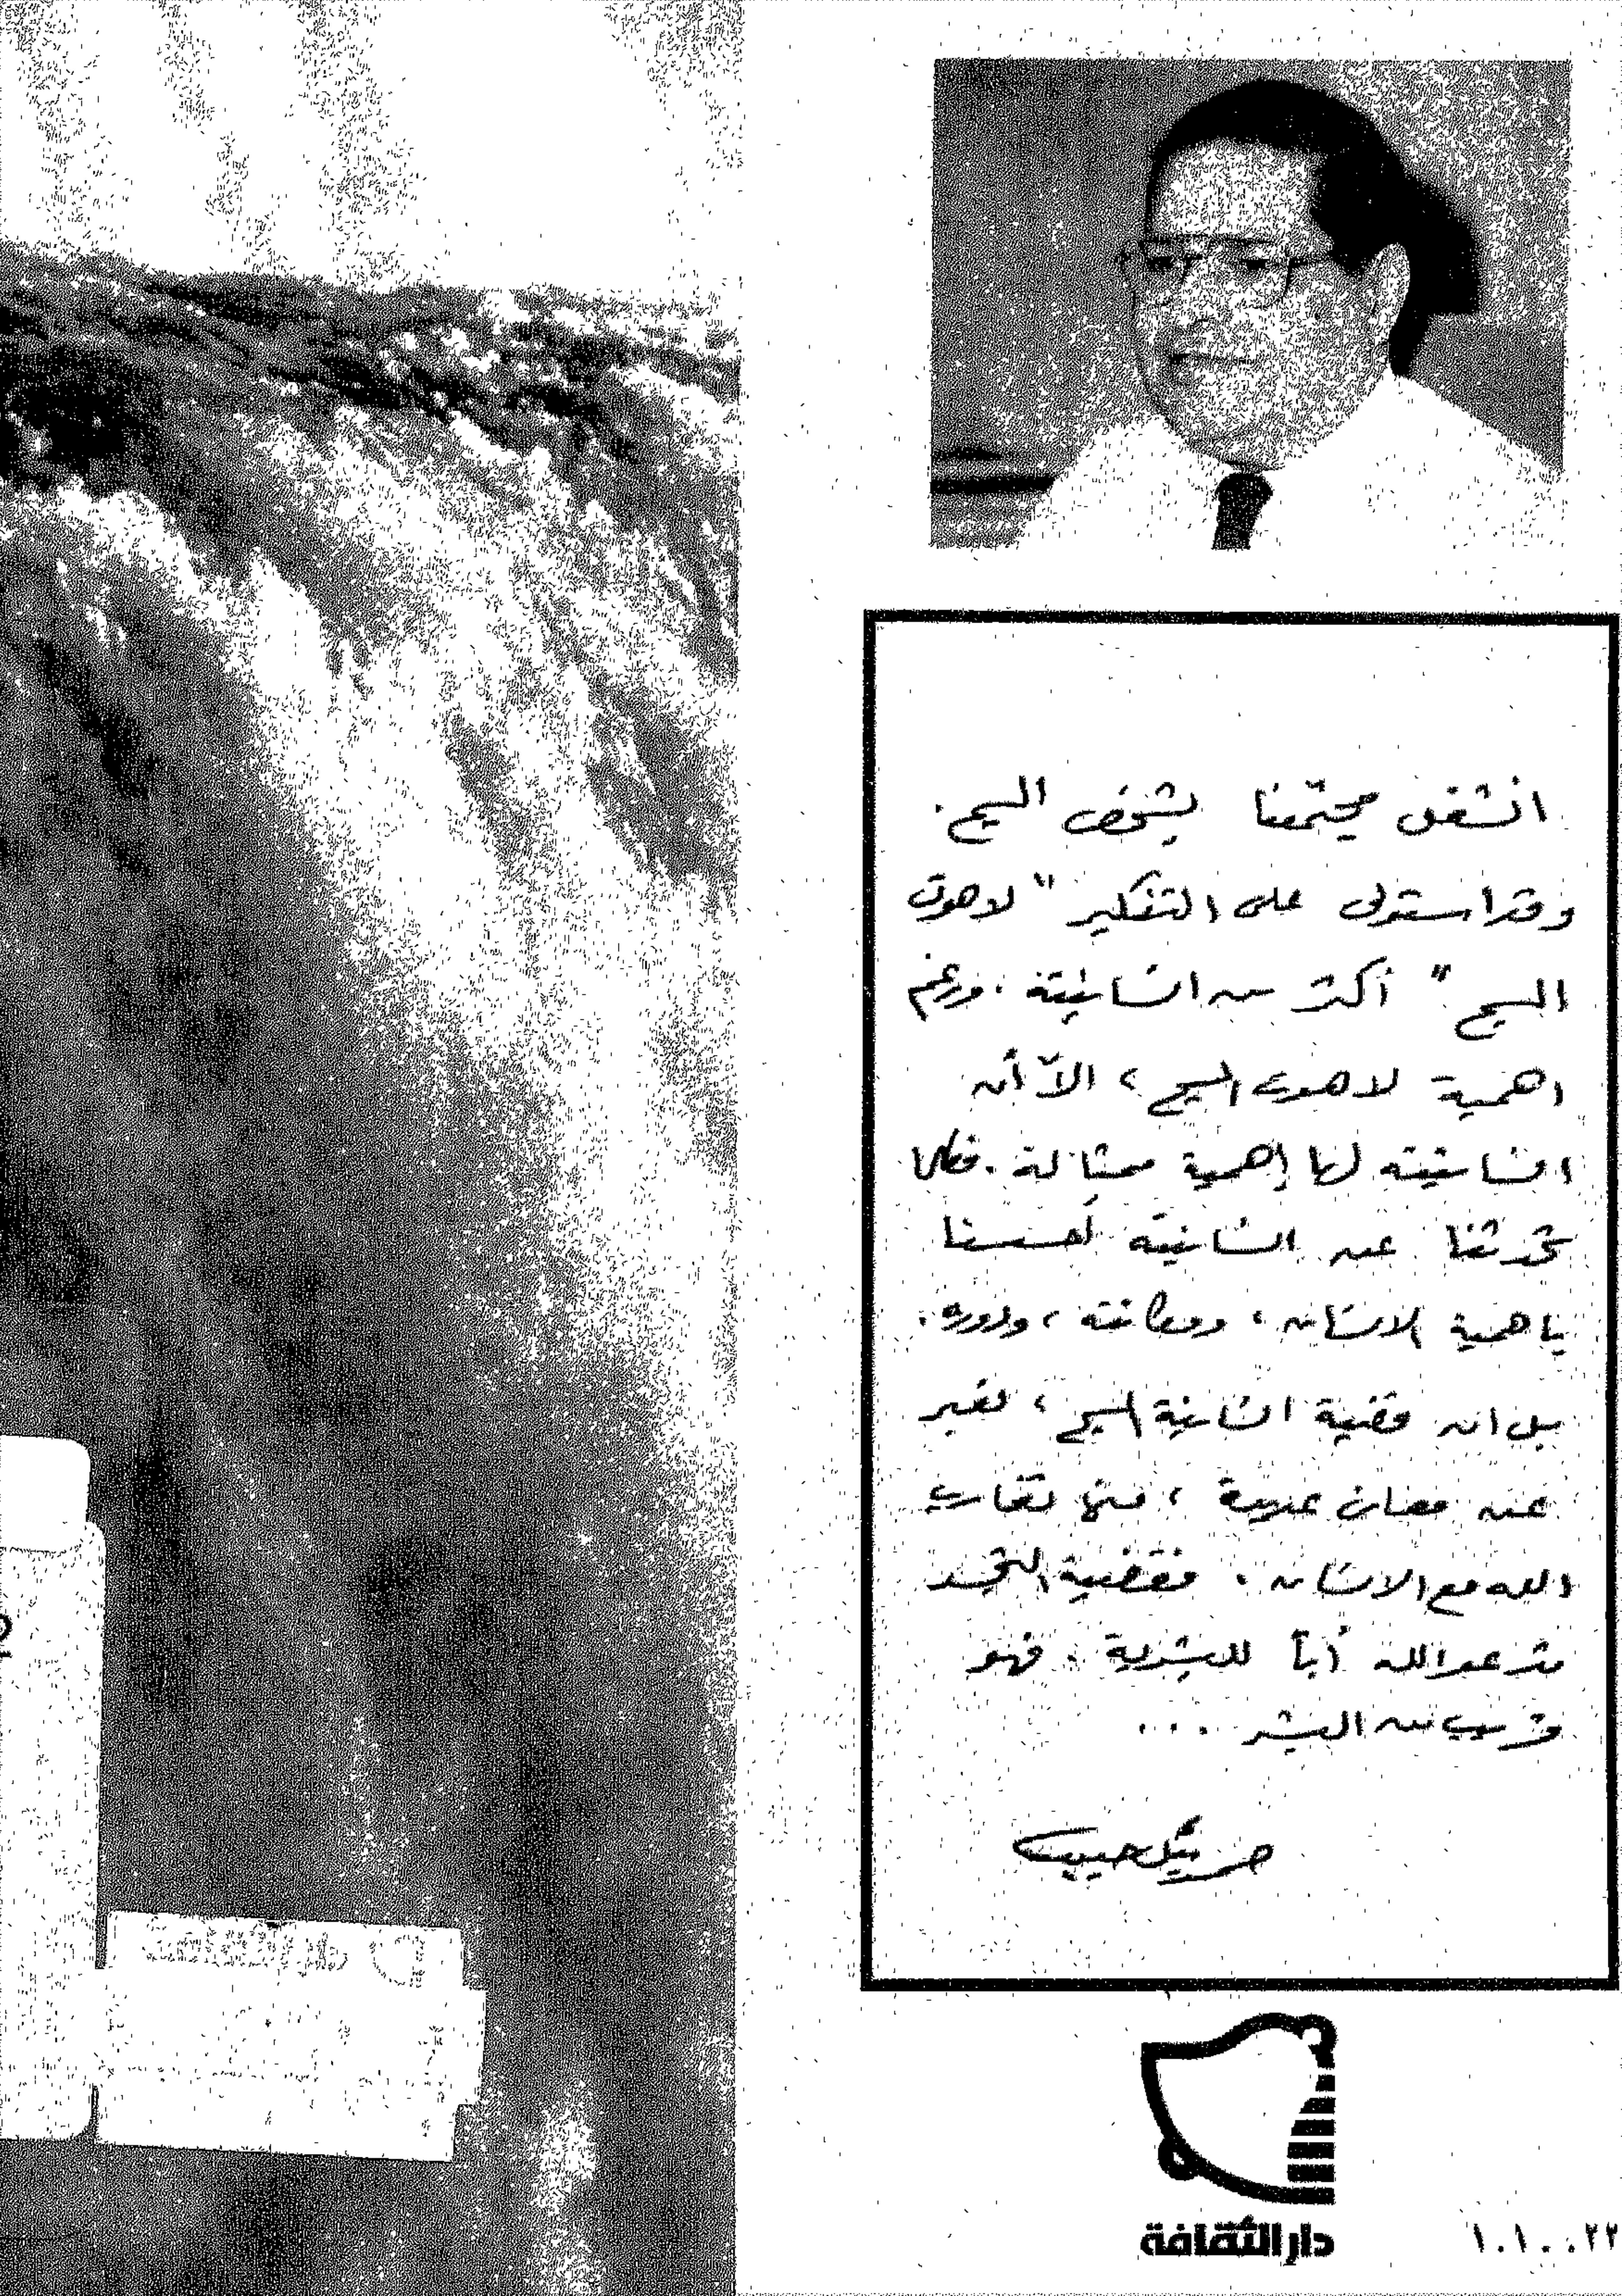 انشغل مجتمعنا بشخص المسيح.
وقد استولى على التفكير "لاهوت
المسيح" أكثر من انسانيته. ورغم
اهمية لاهوت المسيح، الاّ أن
انسانيته لها أهمية مماثلة. فكلما
تحدثنا عن انسانيته أحسسنا
باهمية الانسان، ومكانته، ودوره.
بل ان قضية انسانية المسيح، تعبر
عن معان عديدة، منها تقارب
الله مع الانسان. فقضية التجسد
تدعو الله أباً للبشرية. فهو
قريب من البشر ...
صموئيل حبيب
دار الثقافة
١٠١٠٠٢٢